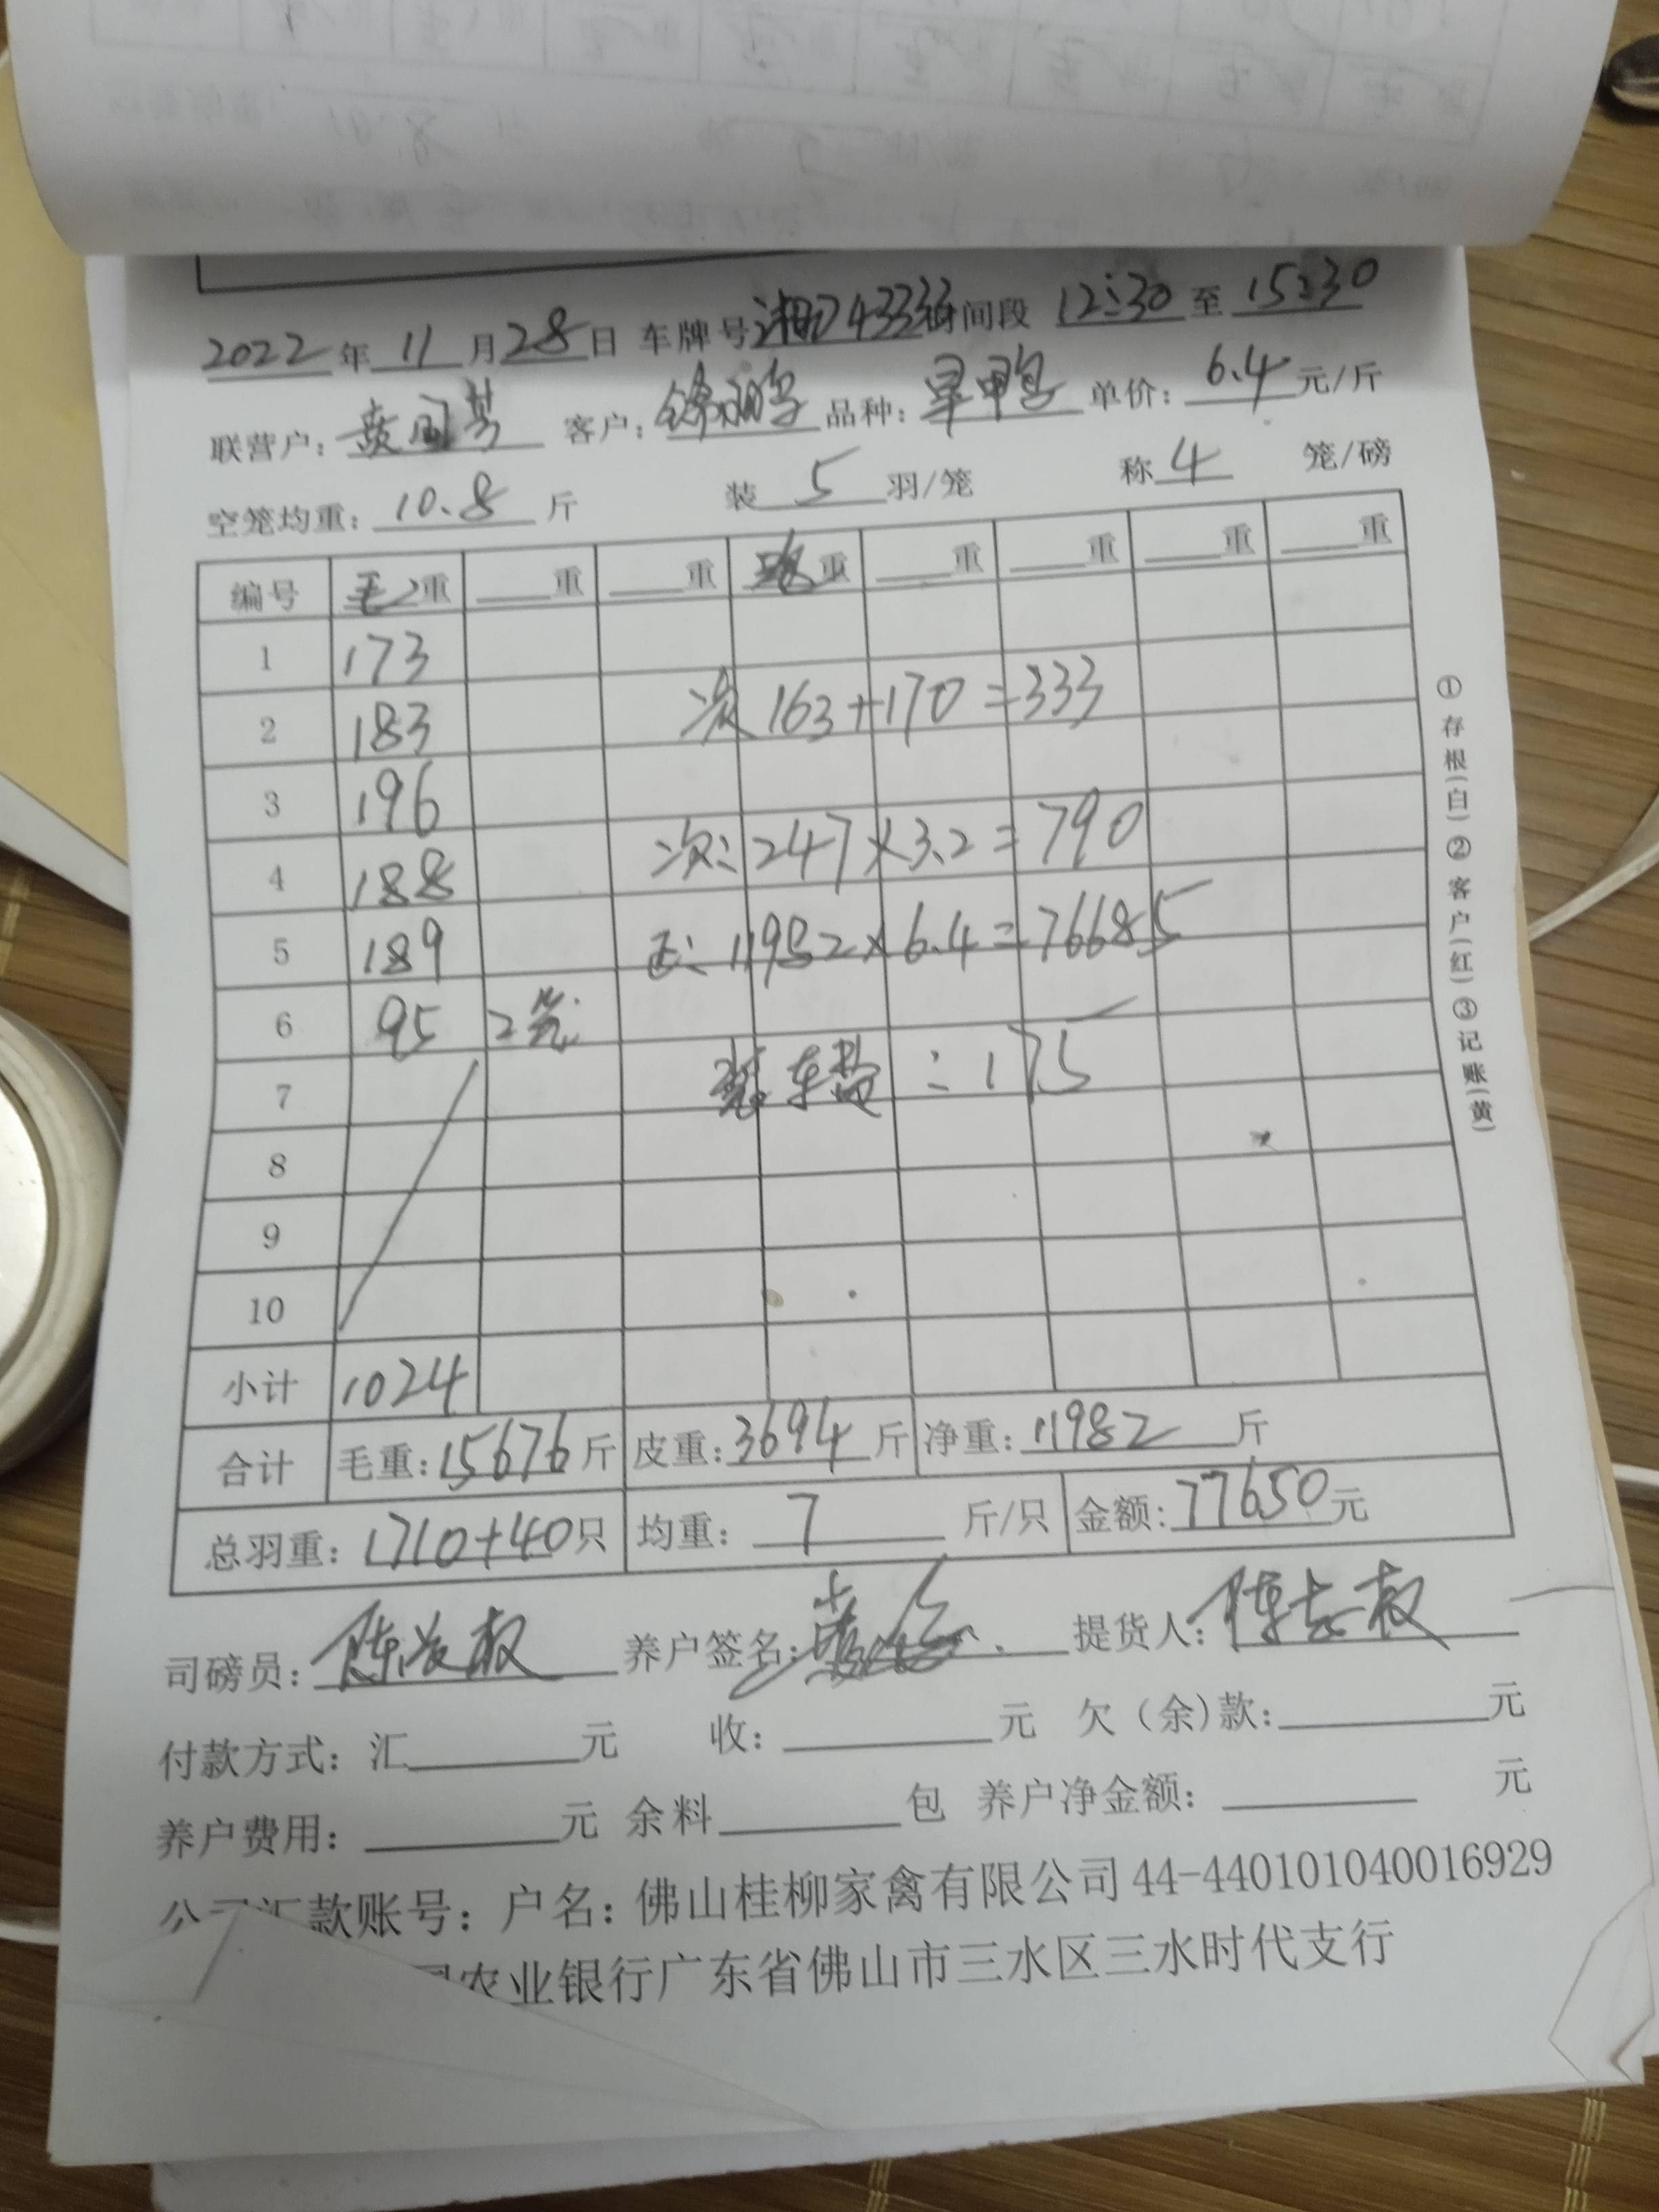 2022年11月28日 车牌号湘D43333 时间段 12:30至15:30
联营户: 客户: 品种: 单价: 6.4元/斤
空笼均重: 10.8斤 装5羽/笼 称4笼/磅
编号 毛重 重 重 重 重 重 重 重
1 173
2 183 次 163+170=333
3 196
4 188 次: 247×3.2=790
5 189 正: 11982×6.4=76685
6 95 2笼
7 装车费: 175
8
9
10
小计 1024
合计 毛重: 15676斤 皮重: 3694斤 净重: 11982斤
总羽重: 1710+40只 均重: 7斤/只 金额: 77650元
司磅员: 养户签名: 提货人: 陈志权
付款方式: 汇 元 收: 元 欠(余)款: 元
养户费用: 元 余料 包 养户净金额: 元
公司汇款账号: 户名: 佛山桂柳家禽有限公司44-440101040016929
农业银行广东省佛山市三水区三水时代支行
①存根(白)②客户(红)③记账(黄)